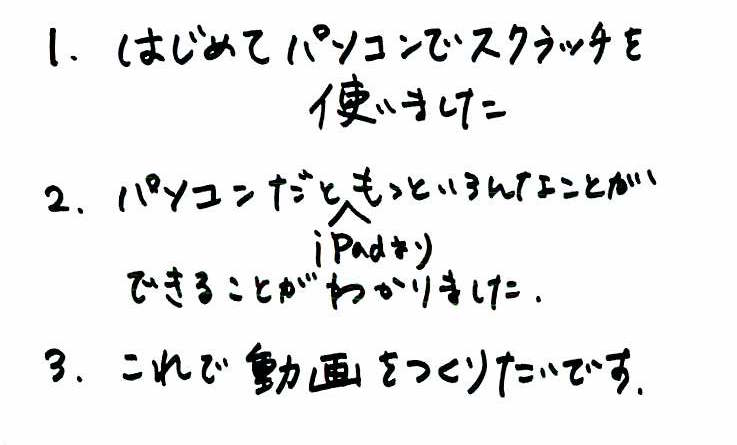 1. はじめてパソコンでスクラッチを
使いました
2. パソコンだともっといろんなことが
iPadより
できることがわかりました.
3. これで動画をつくりたいです.